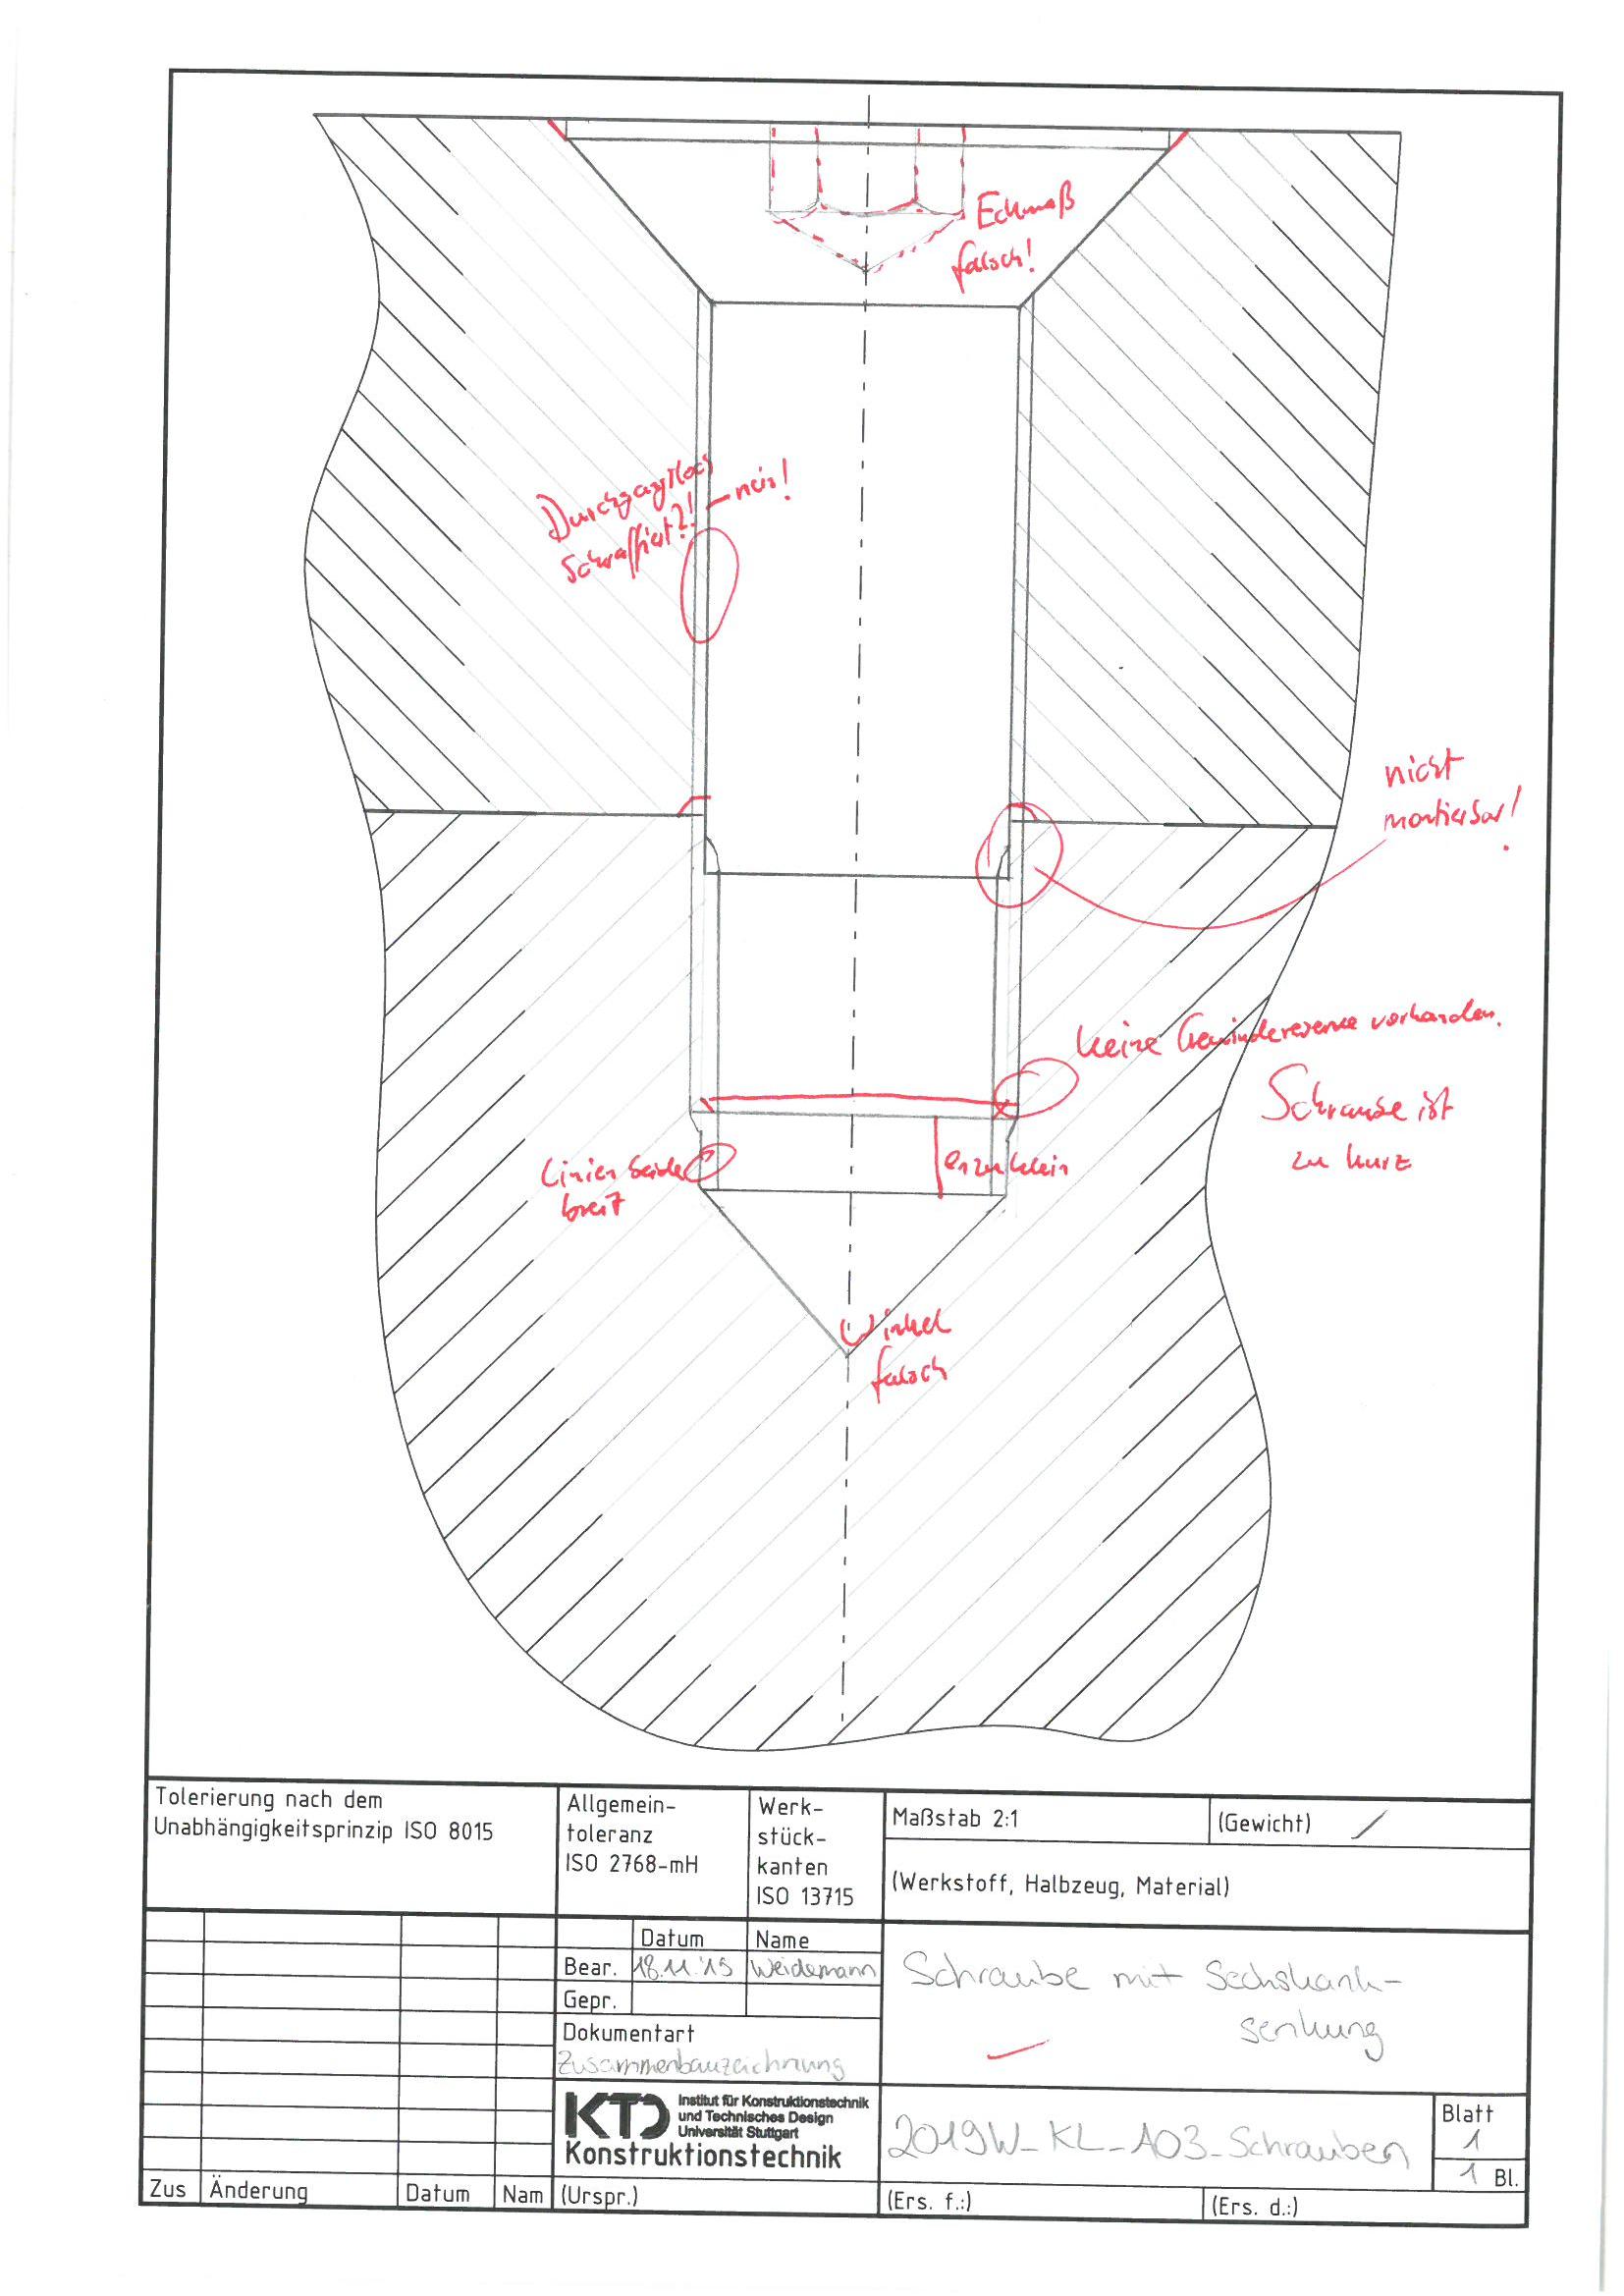 Eckmaß
falsch!
Durchgangsloch
schraffiert?! – nein!
nicht
montierbar!
keine Gewindereserve vorhanden.
Schraube ist
zu kurz
Linien beide
breit
e₁ zu klein
Winkel
falsch
Tolerierung nach dem
Unabhängigkeitsprinzip ISO 8015
Allgemein-
toleranz
ISO 2768-mH
Werk-
stück-
kanten
ISO 13715
Maßstab 2:1
(Gewicht)
(Werkstoff, Halbzeug, Material)
Datum Name
Bear. 18.11.'19 Weidemann
Gepr.
Dokumentart
Zusammenbauzeichnung
Schraube mit Sechskant-
senkung
KTD Institut für Konstruktionstechnik
und Technisches Design
Universität Stuttgart
Konstruktionstechnik
2019W_KL_A03_Schrauben
Blatt
1
1 Bl.
Zus Änderung Datum Nam (Urspr.) (Ers. f.:) (Ers. d.:)